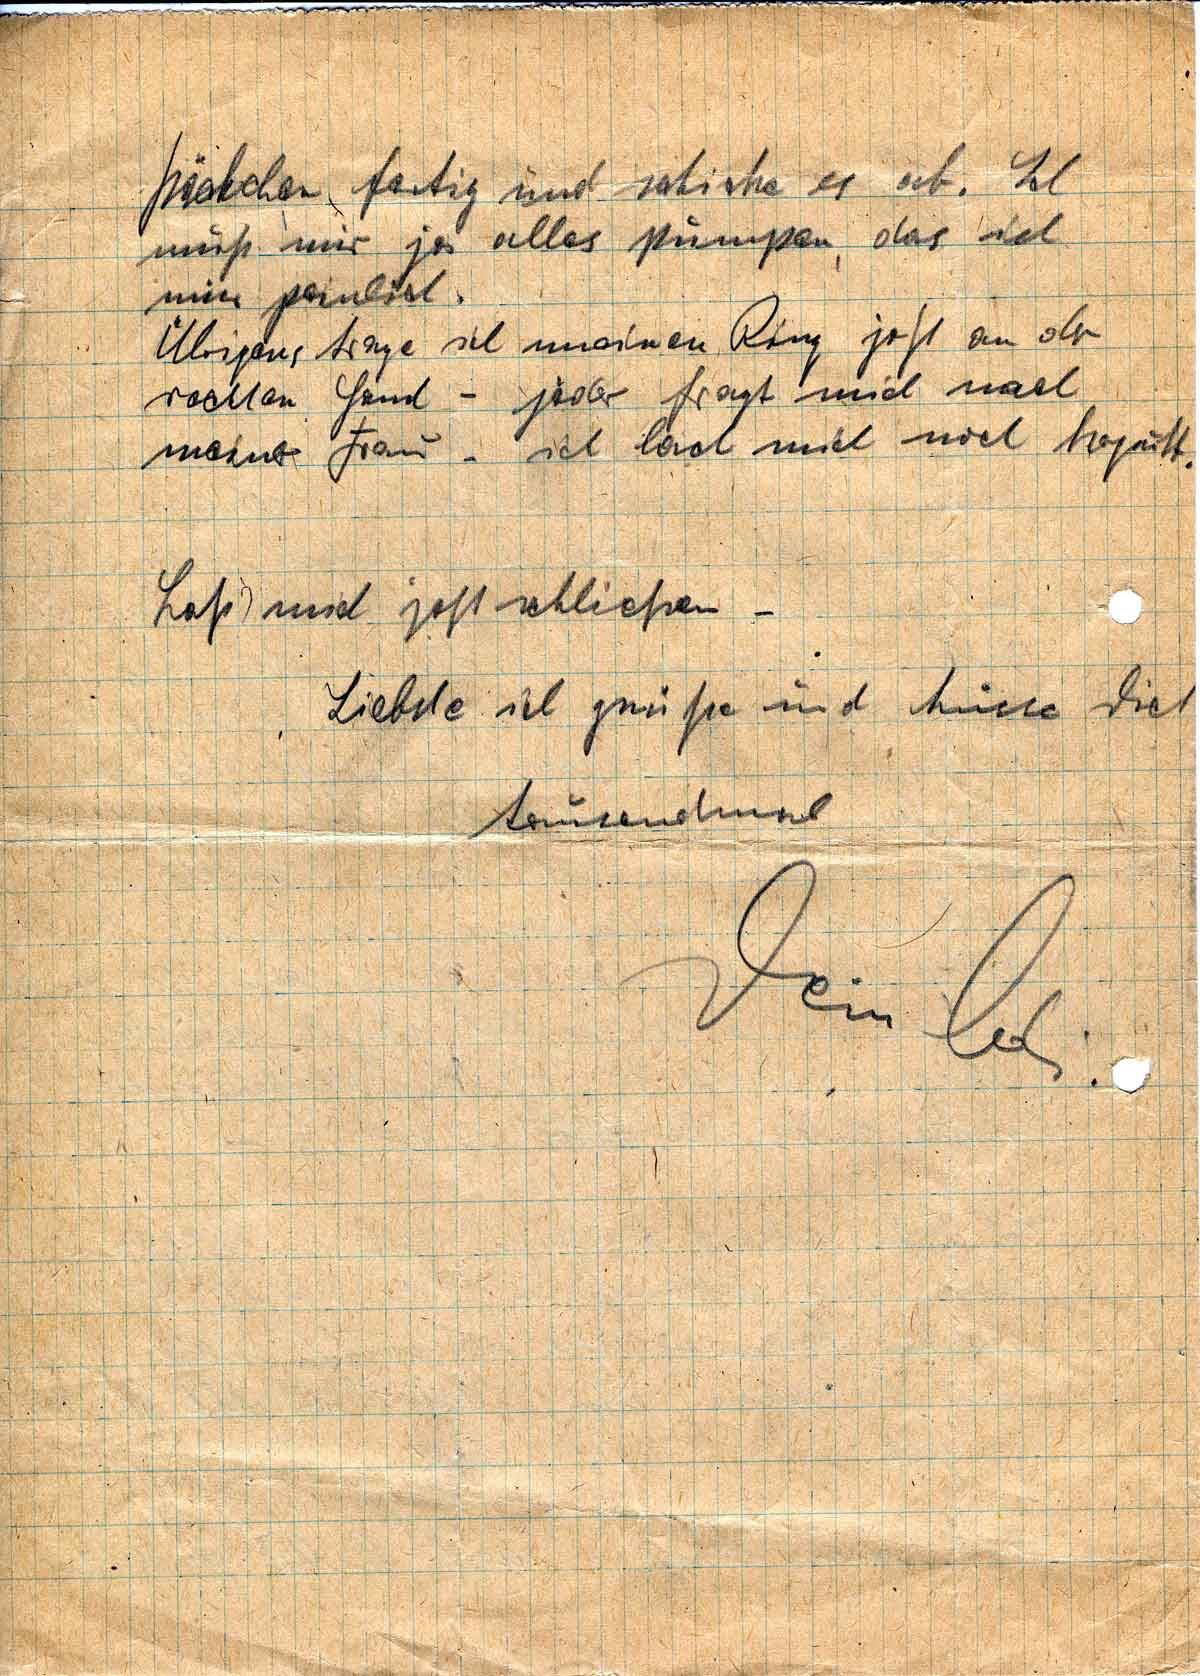 Päckchen fertig und schicke es ab. Ich
muß mir ja alles pumpen, das ist
mir peinlich.
Übrigens trage ich meinen Ring jetzt an der
rechten Hand - jeder fragt mich nach
meiner Frau - ich lach mich noch kaputt.
Laß mich jetzt schließen -
Liebste ich grüße und küsse Dich
tausendmal
Dein